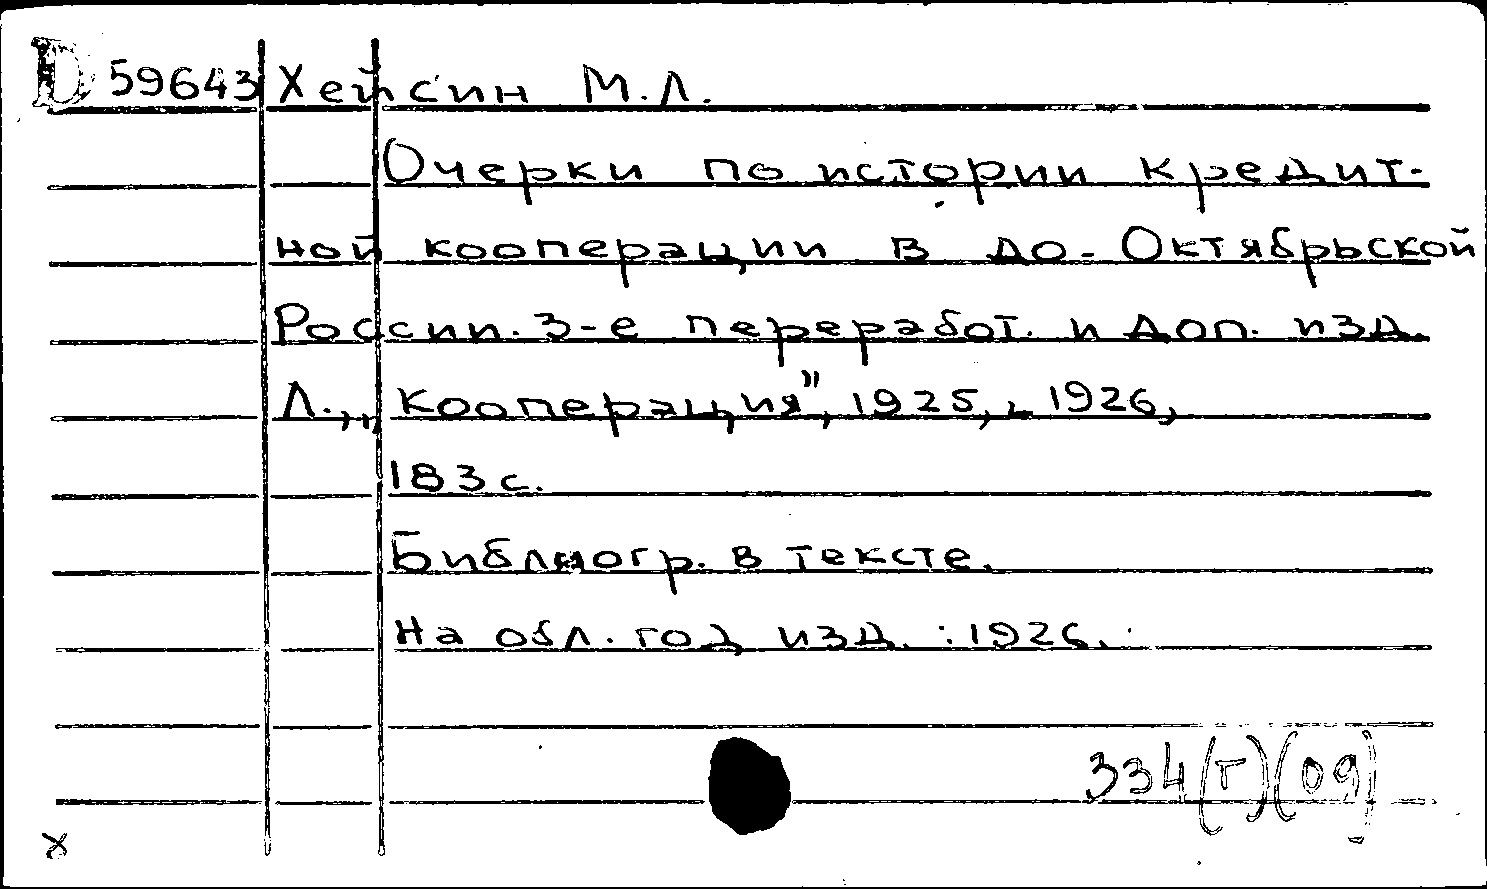 D 59643 Хейсин М.Л.
Очерки по истории кредит-
ной кооперации в до-Октябрьской
России. 3-е переработ. и доп. изд.
Л., „Кооперация", 1925, - 1926,
183 с.
Библиогр. в тексте.
На обл. год изд. : 1926.
334(Г)(09)
х